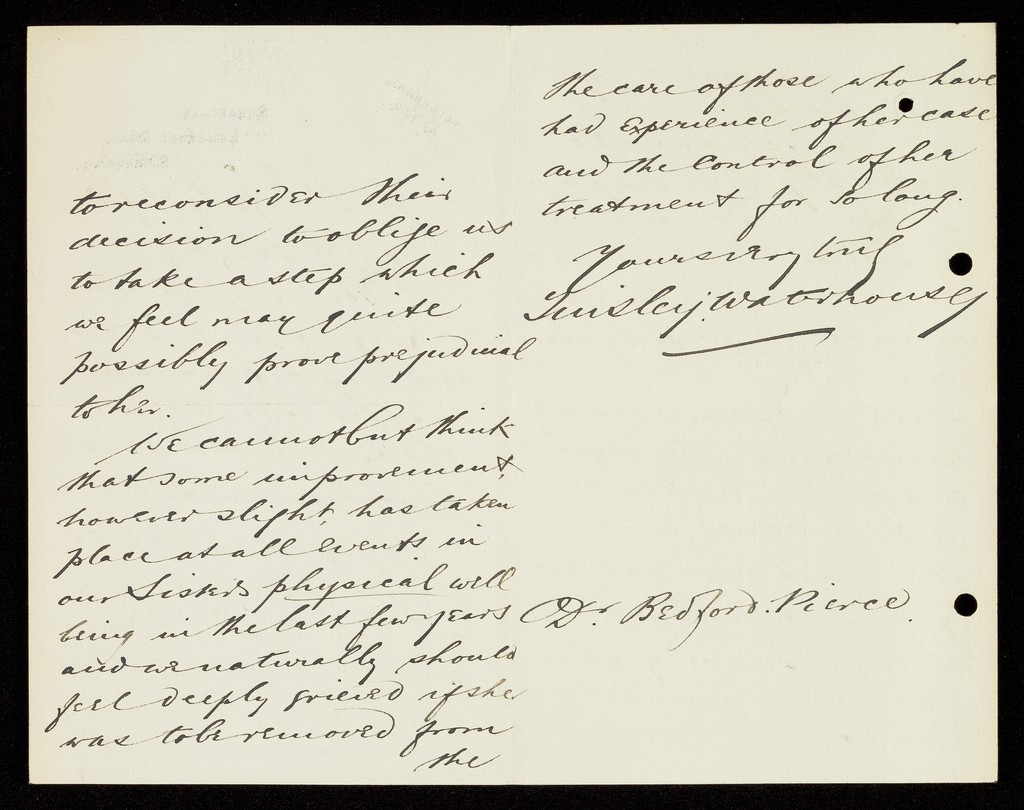 to reconsider their
decision to oblige us
to take a step which
we feel may quite
possibly prove prejudicial
to her.
We cannot but think
that some improvement,
however slight, has taken
place at all events in
our Sister's physical well
being in the last few years
and we naturally should
feel deeply grieved if she
was to be removed from
the
the care of those who have
had experience of her case
and the control of her
treatment for so long.
Yours very truly
Waterhouse
Dr. Bedford Pierce.